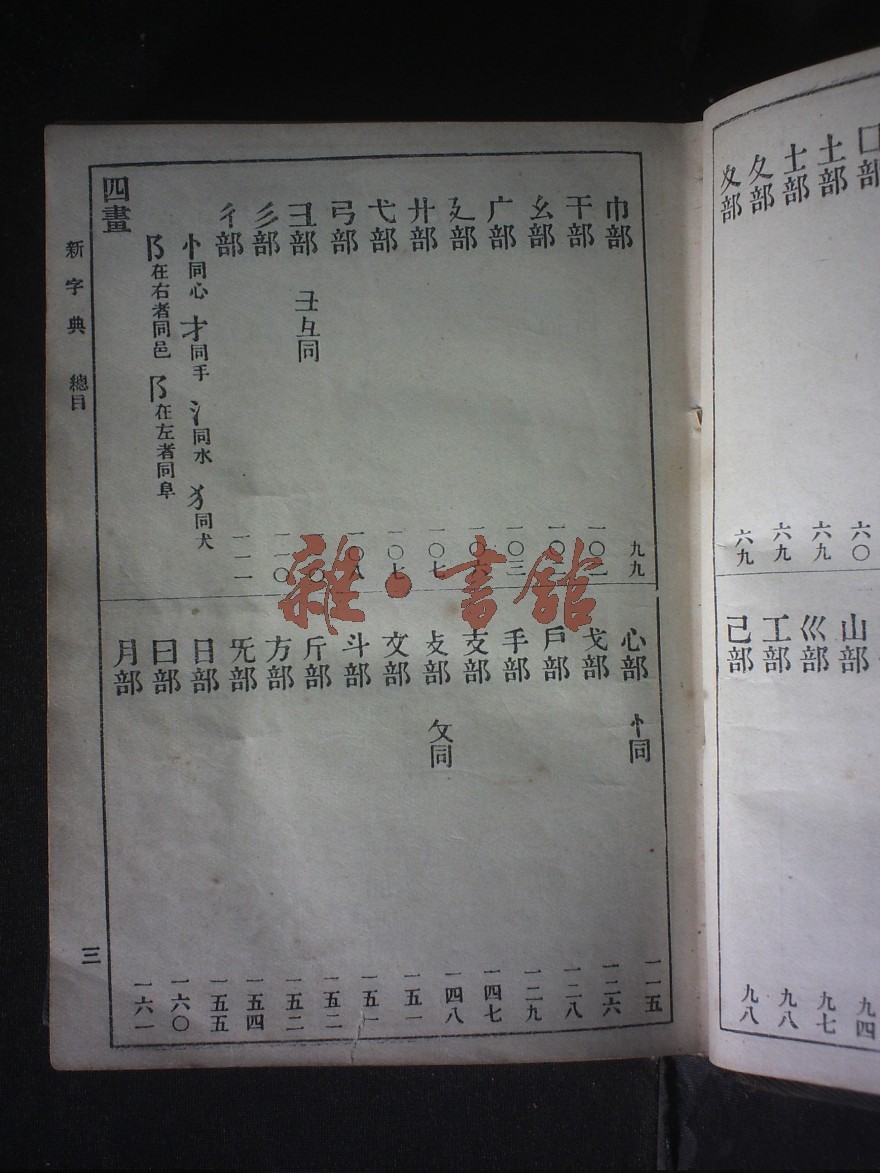 囗部 六〇
土部 六九
士部 六九
夂部 六九
夊部
山部 九四
巛部 九七
工部 九八
己部 九八
巾部 九九
干部 一〇二
幺部 一〇三
广部 一〇三
廴部 一〇六
廾部 一〇七
弋部 一〇七
弓部 一〇八
彐部 彑彑同
彡部 一一〇
彳部 一一一
忄同心 扌同手 氵同水 犭同犬
阝在右者同邑 阝在左者同阜
四畫
心部 忄同 一一五
戈部 一二六
戶部 一二八
手部 一二九
支部 一四七
攴部 攵同 一四八
文部 一五一
斗部 一五一
斤部 一五二
方部 一五二
旡部 一五四
日部 一五五
曰部 一六〇
月部 一六一
新字典 總目
三
雜·書館